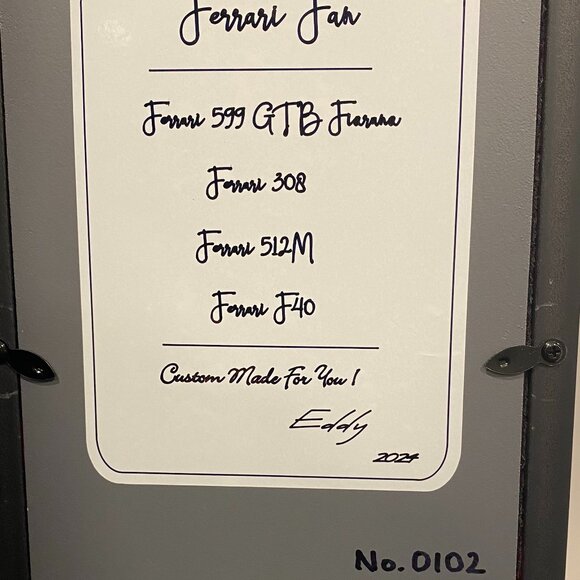 Ferrari Fan
Ferrari 599 GTB Fiarana
Ferrari 308
Ferrari 512M
Ferrari F40
Custom Made For You !
Eddy
2024
No. 0102